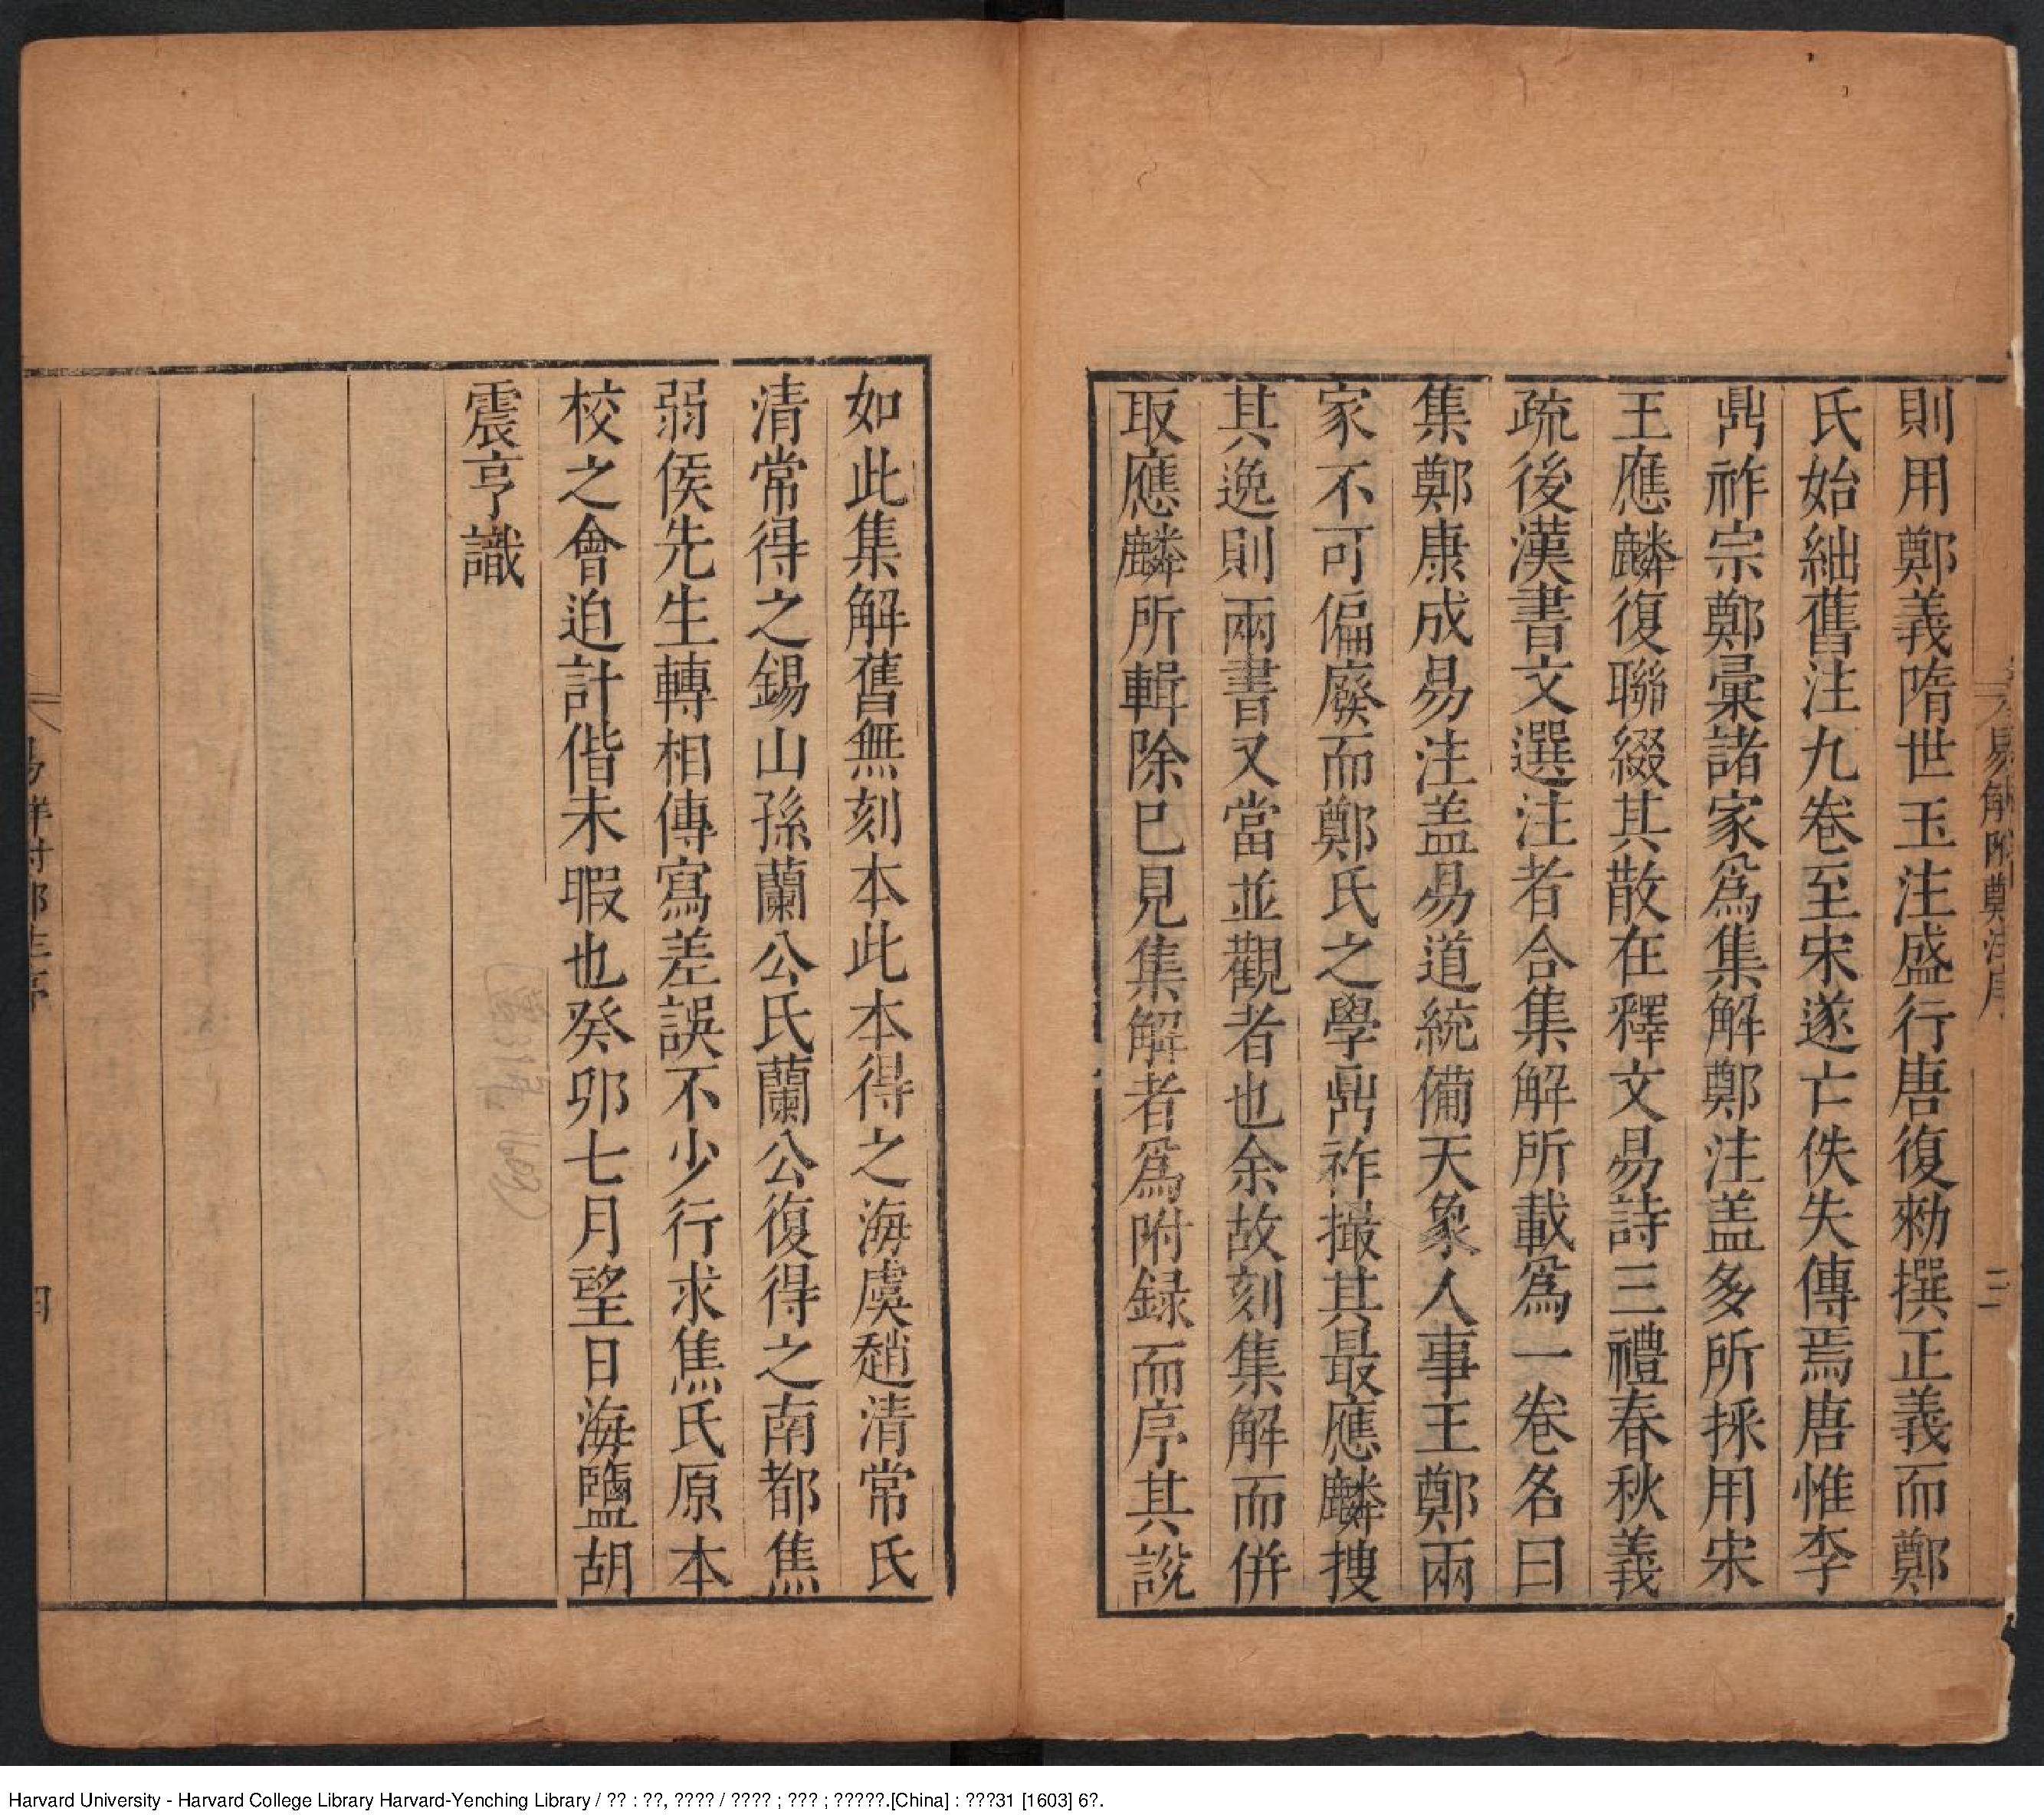 易解附鄭注序
三
則用鄭義隋世王注盛行唐復勑撰正義而鄭
氏始絀舊注九卷至宋遂亡佚失傳焉唐惟李
鼎祚宗鄭彚諸家爲集解鄭注盖多所採用宋
王應麟復聯綴其散在釋文易詩三禮春秋義
疏後漢書文選注者合集解所載爲一卷名曰
集鄭康成易注盖易道統備天象人事王鄭兩
家不可偏廢而鄭氏之學鼎祚撮其最應麟捜
其逸則兩書又當並觀者也余故刻集解而併
取應麟所輯除已見集解者爲附録而序其說
如此集解舊無刻本此本得之海虞趙清常氏
清常得之錫山孫蘭公氏蘭公復得之南都焦
弱侯先生轉相傳寫差誤不少行求焦氏原本
校之會迫計偕未暇也癸卯七月望日海鹽胡
震亨識
易解附鄭注序
四
Harvard University - Harvard College Library Harvard-Yenching Library / ?? : ??, ???? / ???? ; ??? ; ?????.[China] : ???31 [1603] 6?.